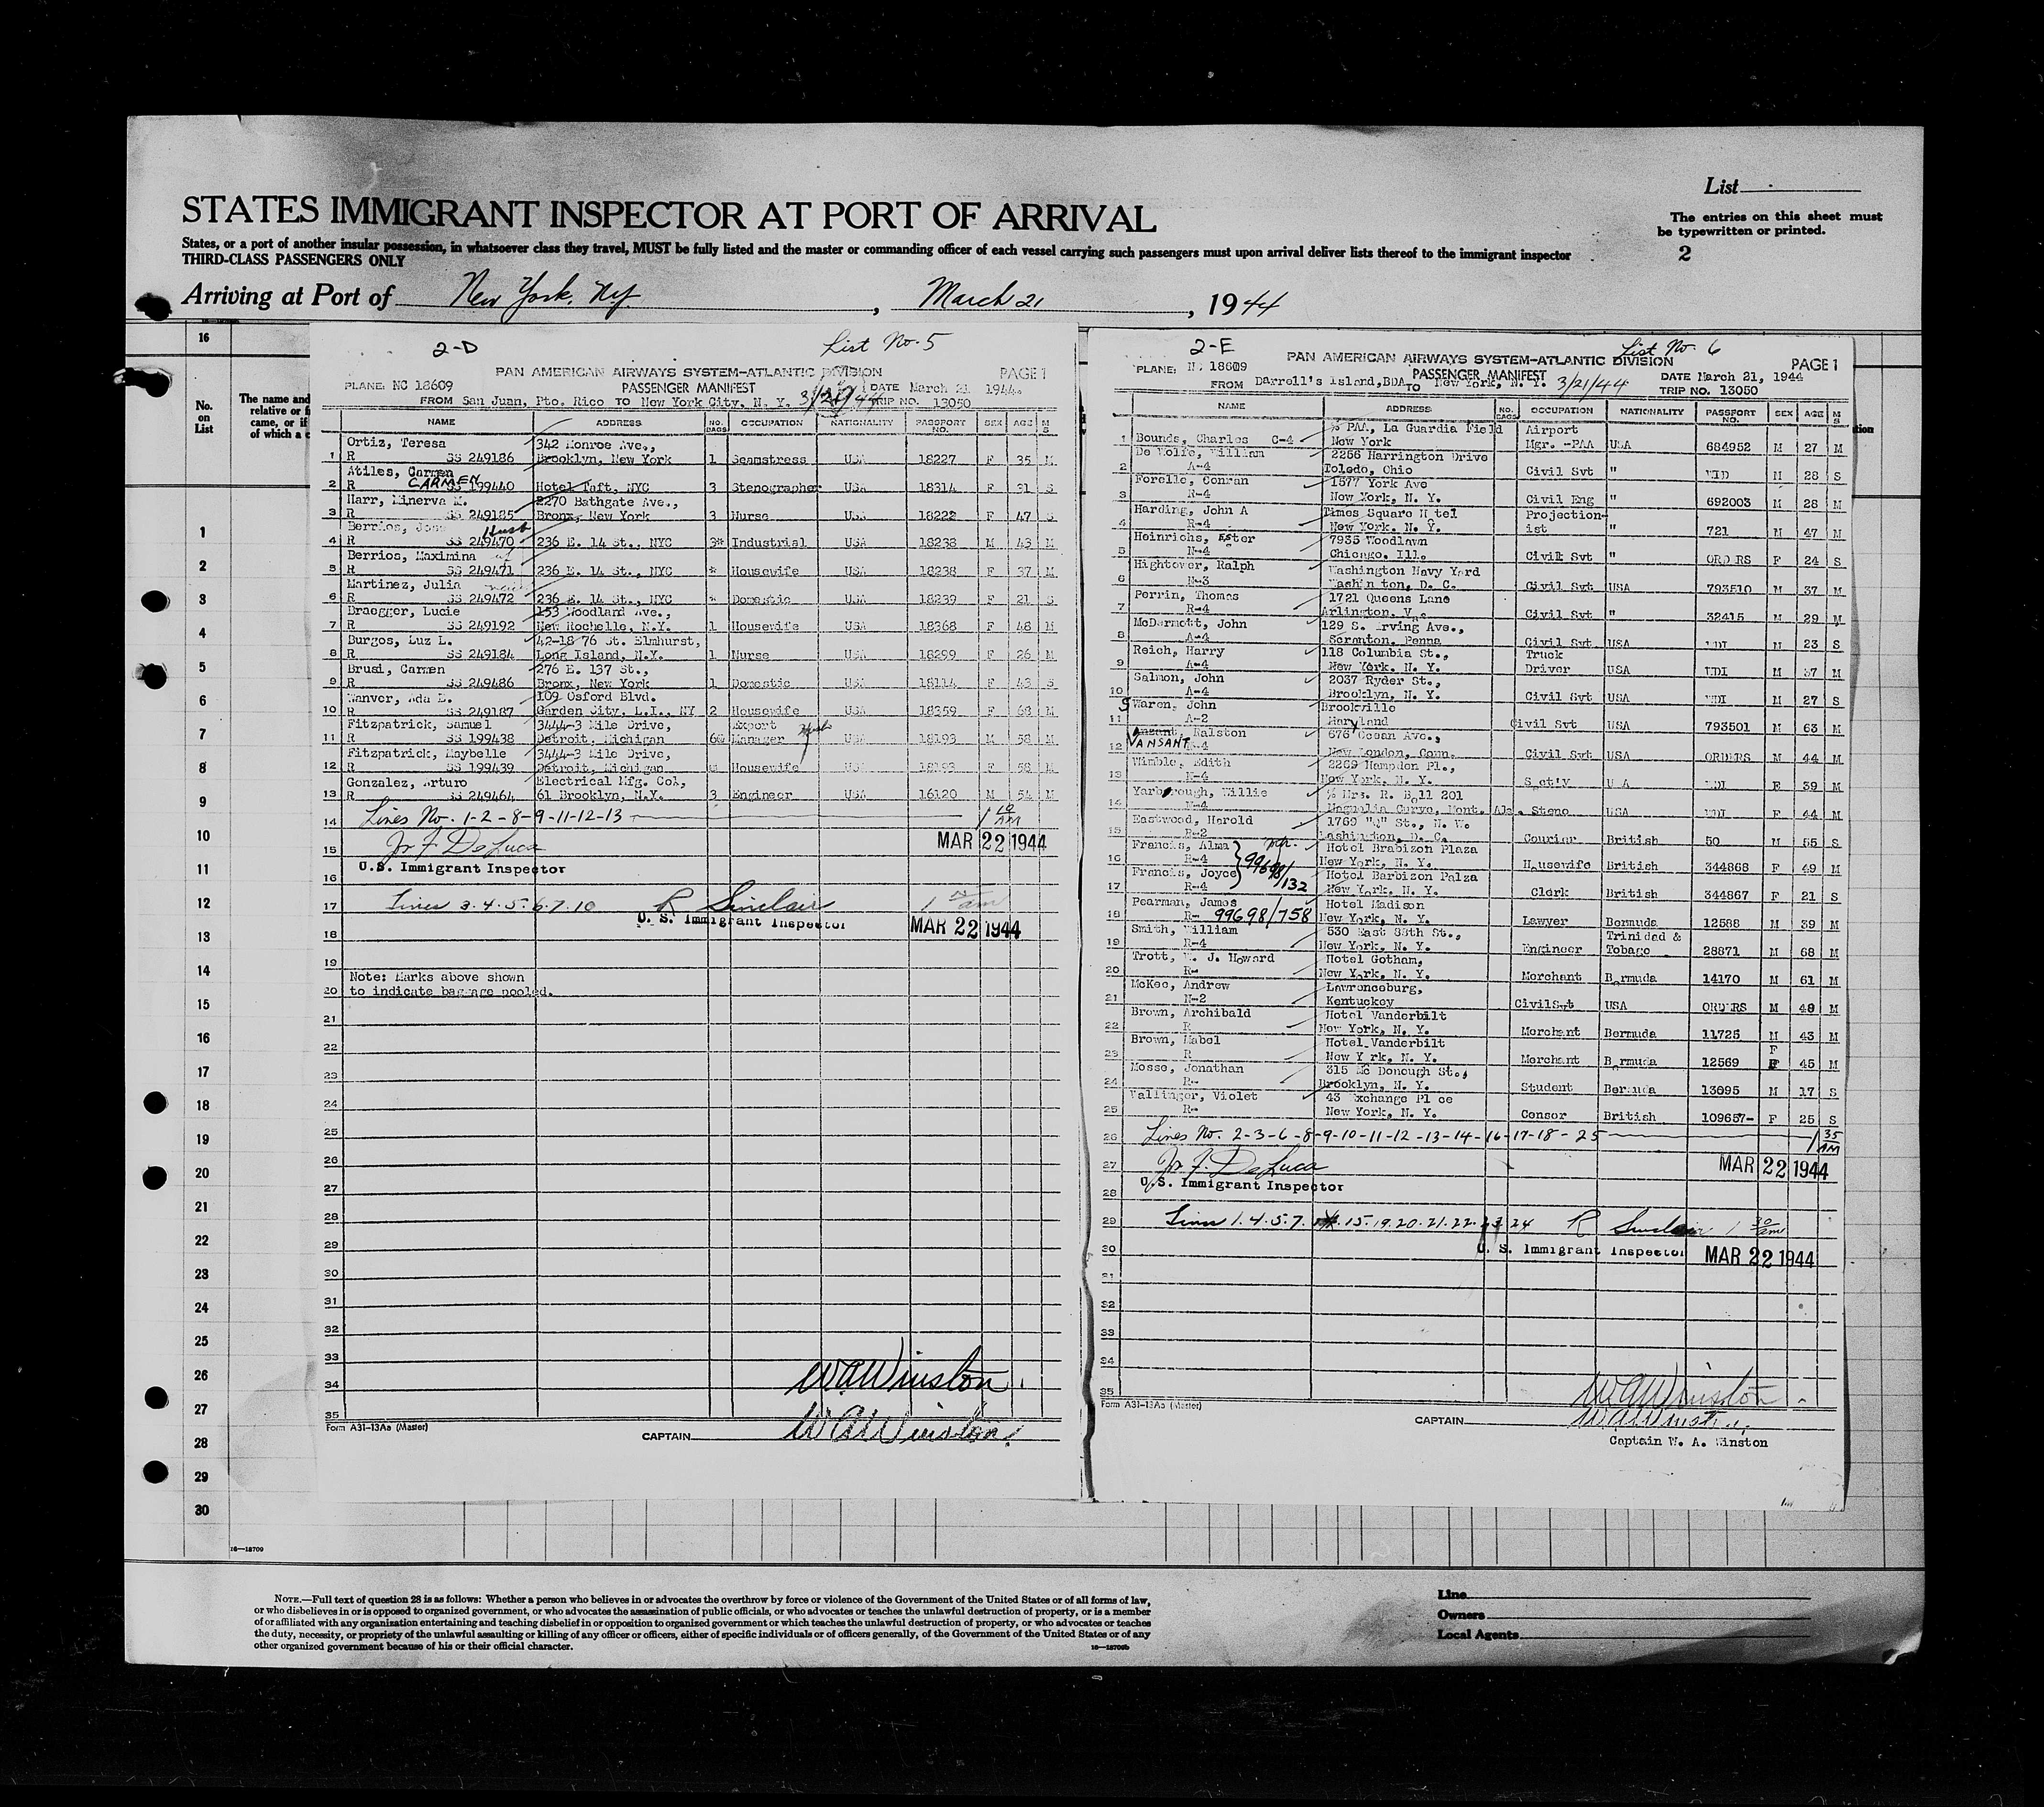 List
STATES IMMIGRANT INSPECTOR AT PORT OF ARRIVAL
The entries on this sheet must
be typewritten or printed.
States, or a port of another insular possession, in whatsoever class they travel, MUST be fully listed and the master or commanding officer of each vessel carrying such passengers must upon arrival deliver lists thereof to the immigrant inspector
2
THIRD-CLASS PASSENGERS ONLY
Arriving at Port of New York, N.Y. , March 21 , 1944
16
No.
on
List
The name and
relative or f
came, or if
of which a c
1
2
3
4
5
6
7
8
9
10
11
12
13
14
15
16
17
18
19
20
21
22
23
24
25
26
27
28
29
30
16—18709
2-D
List No. 5
PAN AMERICAN AIRWAYS SYSTEM—ATLANTIC DIVISION PAGE 1
PLANE: NC 18609 PASSENGER MANIFEST DATE March 21 1944.
FROM San Juan, Pto. Rico TO New York City, N. Y. 3/21/44 TRIP NO. 13050
NAME ADDRESS NO. BAGS OCCUPATION NATIONALITY PASSPORT NO. SEX AGE M S
Ortiz, Teresa 342 Monroe Ave.,
1 R SS 249186 Brooklyn, New York 1 Seamstress USA 18227 F 35 M
Atiles, Carmen
CARMEN
2 R SS 199440 Hotel Taft, NYC 3 Stenographer USA 18314 F 31 S
Harr, Minerva M. 2270 Bathgate Ave.,
3 R SS 249185 Bronx, New York 3 Nurse USA 18222 F 47 S
Berrios, Husb
4 R SS 249470 236 E. 14 St., NYC 3* Industrial USA 18238 M 43 M
Berrios, Maximina wf
5 R SS 249471 236 E. 14 St., NYC * Housewife USA 18238 F 37 M
Martinez, Julia
6 R SS 249472 236 E. 14 St., NYC * Domestic USA 18239 F 21 S
Braegger, Lucie 153 Woodland Ave.,
7 R SS 249192 New Rochelle, N.Y. 1 Housewife USA 18368 F 48 M
Burgos, Luz L. 42-18 76 St. Elmhurst,
8 R SS 249184 Long Island, N.Y. 1 Nurse USA 18299 F 26 M
Brusi, Carmen 276 E. 137 St.,
9 R SS 249486 Bronx, New York 1 Domestic USA 18114 F 43 S
Wanver, Ada E. 109 Osford Blvd.
10 R SS 249187 Garden City, L.I., NY 2 Housewife USA 18359 F 68 M
Fitzpatrick, Samuel 3444-3 Mile Drive, Export
11 R SS 199438 Detroit, Michigan 6@ Manager Husb USA 18193 M 58 M
Fitzpatrick, Maybelle 3444-3 Mile Drive,
12 R SS 199439 Detroit, Michigan @ Housewife USA 18193 F 58 M
Gonzalez, Arturo Electrical Mfg. Col,
13 R SS 249464 61 Brooklyn, N.Y. 3 Engineer USA 16120 M 54 M
14 Lines No. 1-2-8-9-11-12-13 1 10 AM
15 Jr F DeLuca MAR 22 1944
U.S. Immigrant Inspector
16
17 Lines 3.4.5.6.7.10 R Sinclair 1 am
U. S. Immigrant Inspector MAR 22 1944
18
19
Note: Marks above shown
20 to indicate baggage pooled.
21
22
23
24
25
26
27
28
29
30
31
32
33
34 W A Winston
35
Form A31-13Aa (Master)
CAPTAIN W A Winston
2-E
List No. 6
PAN AMERICAN AIRWAYS SYSTEM—ATLANTIC DIVISION PAGE 1
PLANE: NC 18609 PASSENGER MANIFEST DATE March 21, 1944
FROM Darrell's Island, BDA TO New York, N. Y. 3/21/44 TRIP NO. 13050
NAME ADDRESS NO. BAGS OCCUPATION NATIONALITY PASSPORT NO. SEX AGE M S
% PAA, La Guardia Field Airport
1 Bounds, Charles C-4 New York Mgr. -PAA USA 684952 M 27 M
De Wolfe, William 2256 Harrington Drive
2 A-4 Toledo, Ohio Civil Svt " M 28 S
Forelle, Conran 1577 York Ave
3 R-4 New York, N. Y. Civil Eng " 692003 M 28 M
Harding, John A Times Square H tel Projection-
4 R-4 New York, N. Y. ist " 721 M 47 M
Heinrichs, Ester 7935 Woodlawn
5 N-4 Chicago, Ill. Civil Svt " ORD RS F 24 S
Hightower, Ralph Washington Navy Yard
6 N-3 Washin ton, D. C. Civil Svt USA 793510 M 37 M
Perrin, Thomas 1721 Queens Lane
7 R-4 Arlington, V Civil Svt " 32415 M 29 M
McDermott, John 129 S. Irving Ave.,
8 A-4 Scranton, Penna Civil Svt USA M 23 S
Reich, Harry 118 Columbia St., Truck
9 A-4 New York, N. Y. Driver USA M 37 M
Salmon, John 2037 Ryder St.,
10 A-4 Brooklyn, N. Y. Civil Svt USA M 27 S
Waren, John Brookville
11 A-2 Maryland Civil Svt USA 793501 M 63 M
Ralston 678 Ocean Ave.,
12 VANSANT -4 New London, Conn. Civil Svt USA ORDERS M 44 M
Wimble, Edith 2269 Hampden Pl.,
13 N-4 New York, N. Y. S ct'y U A F 39 M
Yarborough, Willie % Mrs. R. Bell 201
14 N-4 Magnolia Curve, Mont. Ala. Steno USA F 44 M
Eastwood, Harold 1769 "Q" St., N. W.
15 R-2 Washington, D. C. Courier British 50 M 55 S
Francis, Alma Hotel Brabizon Plaza
16 R-4 New York, N. Y. Housewife British 344868 F 49 M
Francis, Joyce 99698/132 Hotel Barbizon Palza
17 R-4 New York, N. Y. Clerk British 344867 F 21 S
Pearman, James Hotel Madison
18 R- 99698/758 New York, N. Y. Lawyer Bermuda 12588 M 39 M
Smith, William 530 East 88th St., Trinidad &
19 R-4 New York, N. Y. Engineer Tobago 28871 M 68 M
Trott, W. J. Howard Hotel Gotham,
20 R- New York, N. Y. Merchant Bermuda 14170 M 61 M
McKee, Andrew Lawrenceburg,
21 N-2 Kentuckey CivilSvt USA ORDERS M 48 M
Brown, Archibald Hotel Vanderbilt
22 R New York, N. Y. Merchant Bermuda 11725 M 43 M
Brown, Mabel Hotel Vanderbilt F
23 R New Y rk, N. Y. Merchant Bermuda 12569 F 45 M
Mosse, Jonathan 315 Mc Donough St.,
24 R- Brooklyn, N. Y. Student Bermuda 13095 M 17 S
Wallinger, Violet 43 Exchange Pl ce
25 R- New York, N. Y. Censor British 109657- F 25 S
26 Lines No. 2-3-6-8-9-10-11-12-13-14-16-17-18-25 1 35 AM
27 Jr F. DeLuca MAR 22 1944
U.S. Immigrant Inspector
28
29 Lines 1.4.5.7. 15.19.20.21.22.23.24 R Sinclair 1 30 am
30 U. S. Immigrant Inspector MAR 22 1944
31
32
33
34
35 W A Winston
Form A31-13Aa (Master)
CAPTAIN W A Winston
Captain W. A. Winston
tion
NOTE.—Full text of question 28 is as follows: Whether a person who believes in or advocates the overthrow by force or violence of the Government of the United States or of all forms of law,
or who disbelieves in or is opposed to organized government, or who advocates the assassination of public officials, or who advocates or teaches the unlawful destruction of property, or is a member
of or affiliated with any organization entertaining and teaching disbelief in or opposition to organized government or which teaches the unlawful destruction of property, or who advocates or teaches
the duty, necessity, or propriety of the unlawful assaulting or killing of any officer or officers, either of specific individuals or of officers generally, of the Government of the United States or of any
other organized government because of his or their official character.
16—18709b
Line
Owners
Local Agents